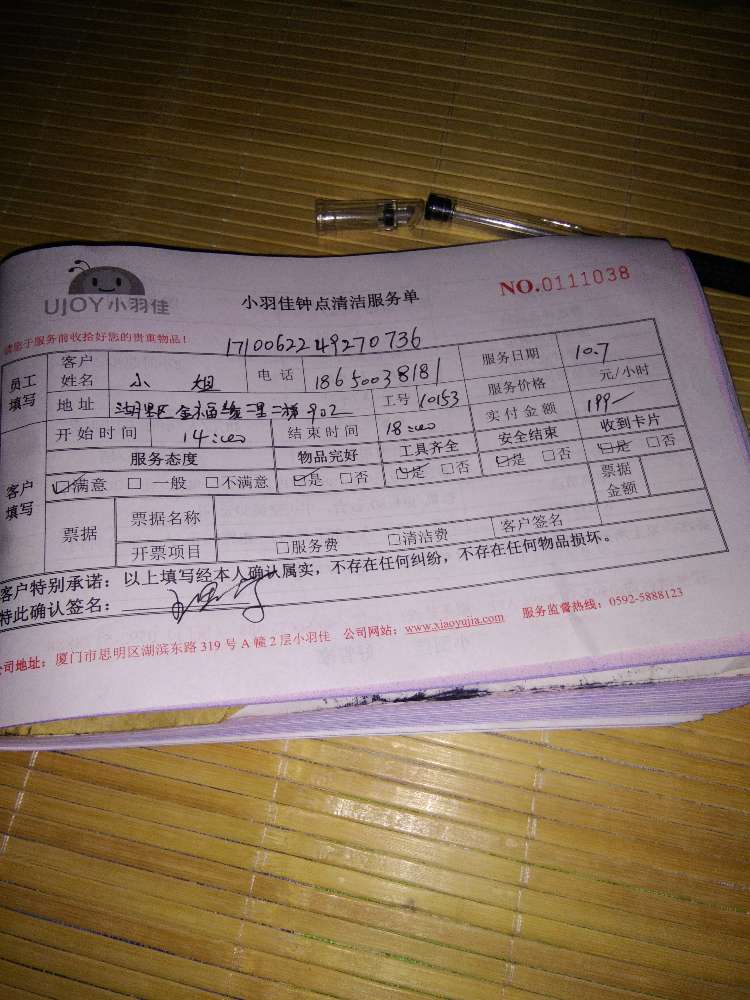 UJOY小羽佳
小羽佳钟点清洁服务单
NO.0111038
请您于服务前收拾好您的贵重物品！
1710062249270736
员工填写
客户姓名 小 姐 电话 18650038181 服务日期 10.7
地址 湖里区金福缘二里二梯902 工号 10153 服务价格 元/小时
开始时间 14:00 结束时间 18:00 实付金额 199-
客户填写
服务态度 物品完好 工具齐全 安全结束 收到卡片
☑满意 □ 一般 □不满意 ☑是 □否 ☑是 □否 ☑是 □否 ☑是 □否
票据 票据名称 票据金额
开票项目 □服务费 □清洁费 客户签名
客户特别承诺：以上填写经本人确认属实，不存在任何纠纷，不存在任何物品损坏。
特此确认签名：
公司地址：厦门市思明区湖滨东路319号A幢2层小羽佳 公司网站：www.xiaoyujia.com 服务监督热线：0592-5888123